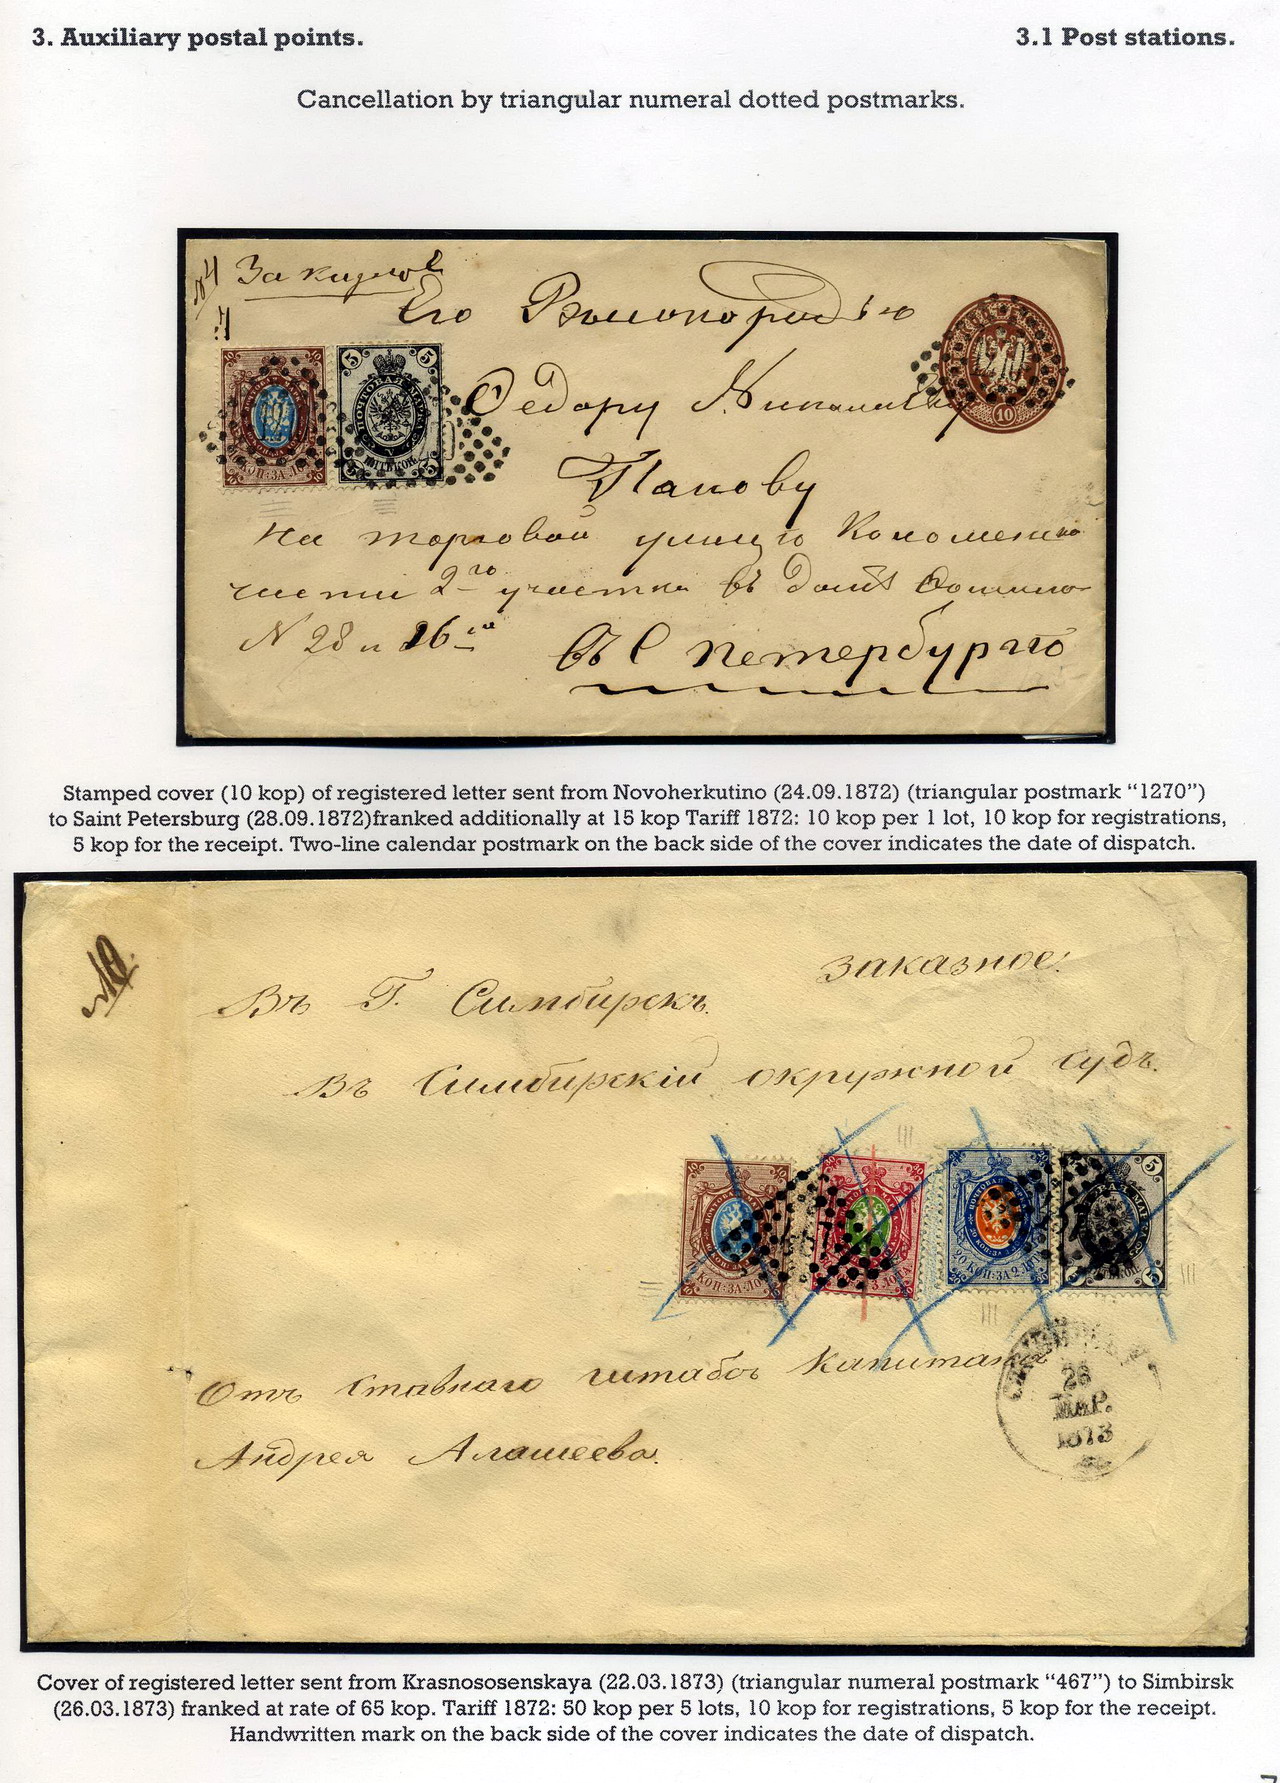 3. Auxiliary postal points.
3.1 Post stations.
Cancellation by triangular numeral dotted postmarks.
Его
Федору
Попову
на торговой улицу
части 2го участка въ домѣ
N 28 и 26
въ С петербургѣ
10
5
5
ПОЧТОВАЯ
10
Stamped cover (10 kop) of registered letter sent from Novoherkutino (24.09.1872) (triangular postmark “1270”)
to Saint Petersburg (28.09.1872)franked additionally at 15 kop Tariff 1872: 10 kop per 1 lot, 10 kop for registrations,
5 kop for the receipt. Two-line calendar postmark on the back side of the cover indicates the date of dispatch.
заказное.
Въ Г. Симбирскъ.
Въ Симбирскій окружной судъ.
КОП:ЗА:ЛО
20 КОП:ЗА 2 ЛО
5
26
МАР.
1873
Отъ штабсъ Капитана
Андрея Алашеева.
Cover of registered letter sent from Krasnososenskaya (22.03.1873) (triangular numeral postmark “467”) to Simbirsk
(26.03.1873) franked at rate of 65 kop. Tariff 1872: 50 kop per 5 lots, 10 kop for registrations, 5 kop for the receipt.
Handwritten mark on the back side of the cover indicates the date of dispatch.